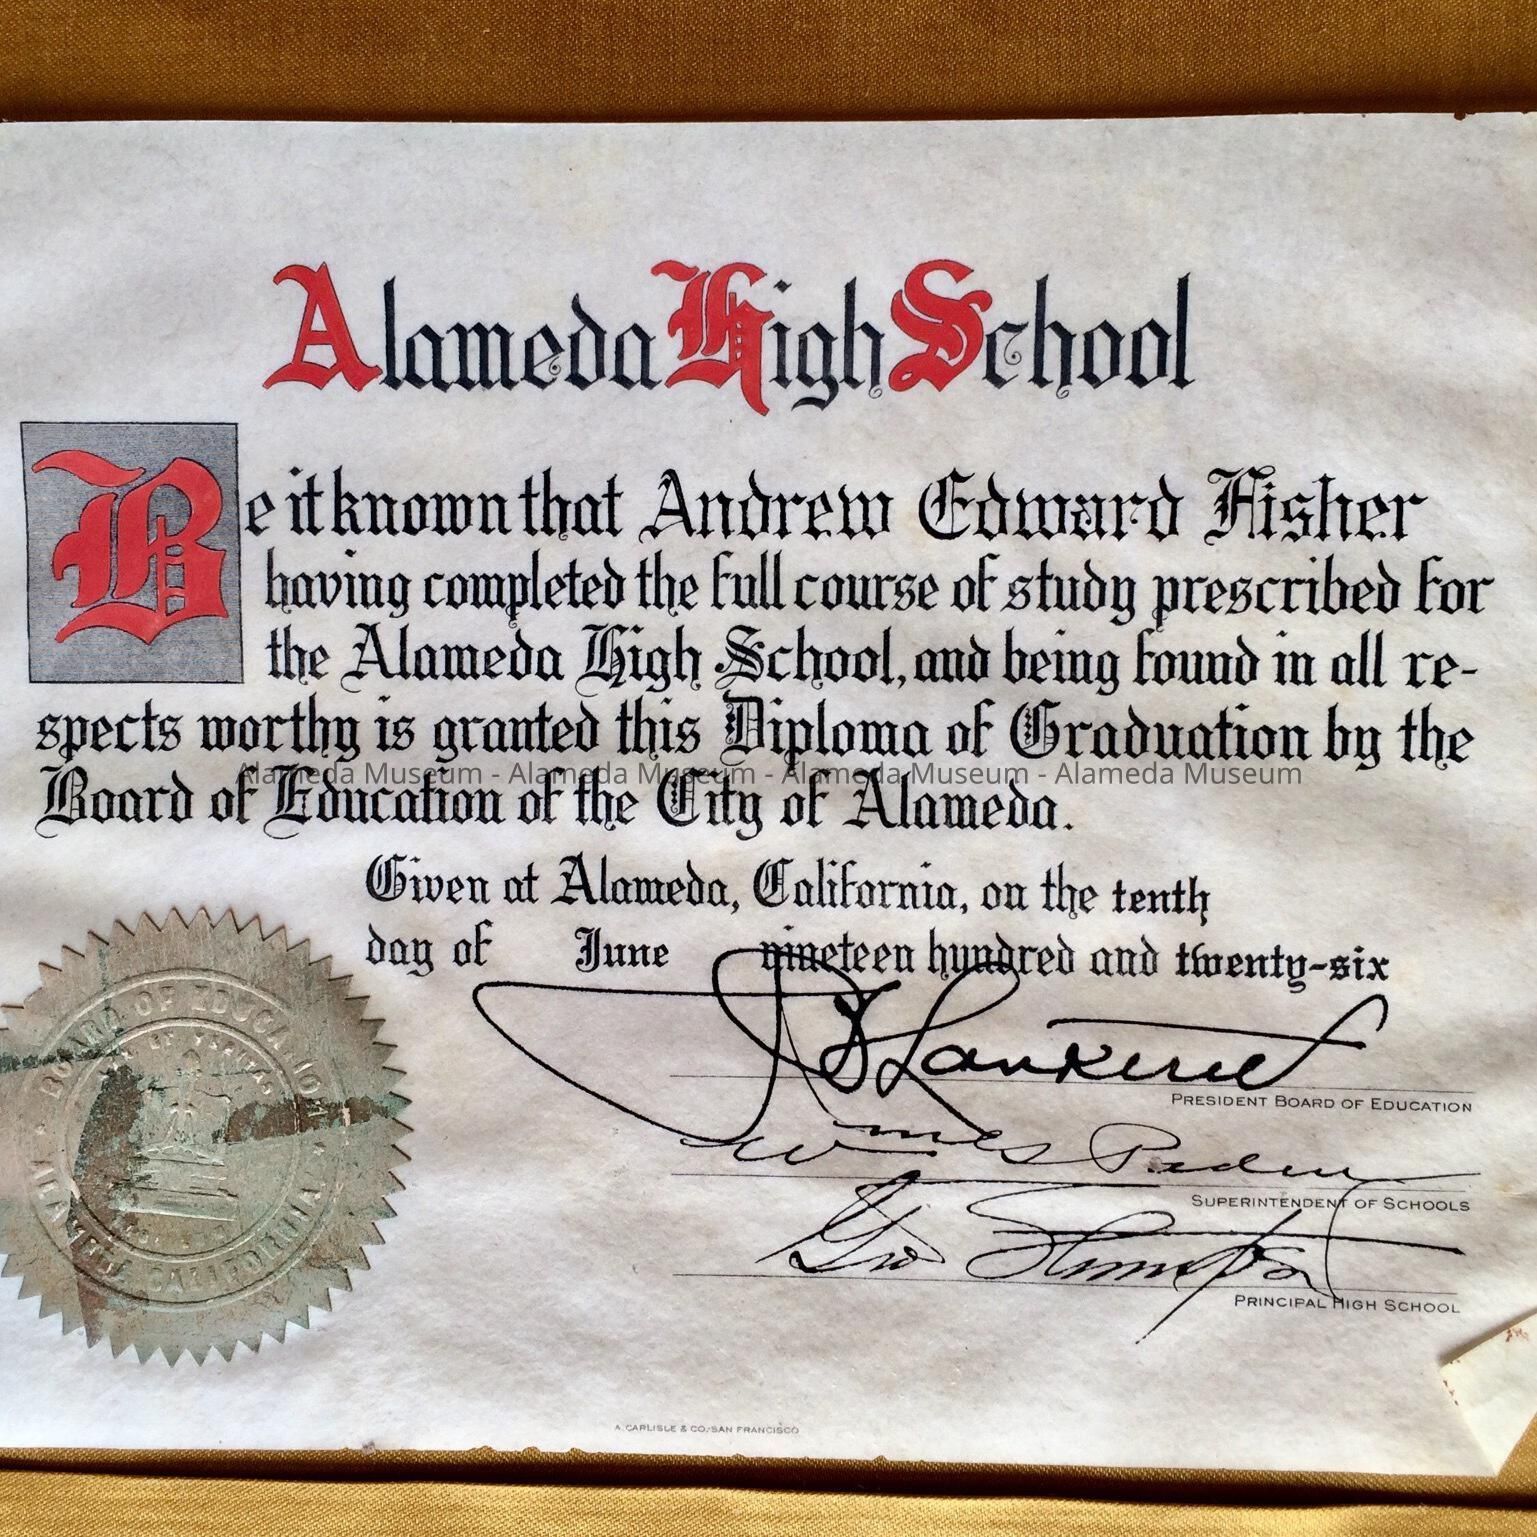 Alameda High School
Be it known that Andrew Edward Fisher
having completed the full course of study prescribed for
the Alameda High School, and being found in all re-
spects worthy is granted this Diploma of Graduation by the
Alameda Museum - Alameda Museum - Alameda Museum - Alameda Museum
Board of Education of the City of Alameda.
Given at Alameda, California, on the tenth
day of June nineteen hundred and twenty-six
PRESIDENT BOARD OF EDUCATION
Paden
SUPERINTENDENT OF SCHOOLS
Geo Thompson
PRINCIPAL HIGH SCHOOL
BOARD OF EDUCATION
ALAMEDA CALIFORNIA
A. CARLISLE & CO. SAN FRANCISCO